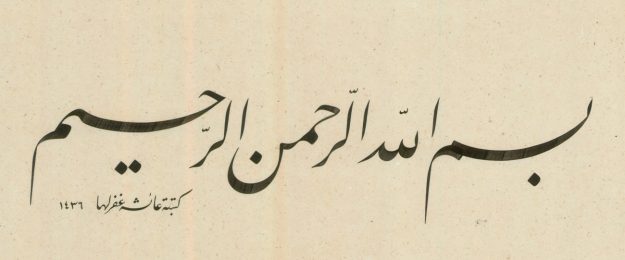 بسم الله الرّحمن الرّحيم
كتبته عائشه غفرلها ١٤٣٦